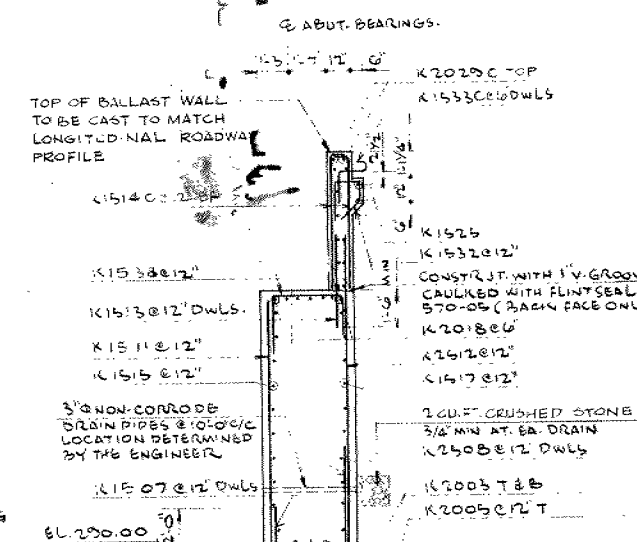 ℄ ABUT. BEARINGS.
12" 6"
K2029C TOP
K1533C@6 DWLS
TOP OF BALLAST WALL
TO BE CAST TO MATCH
PROFILE
2 1/2
12
6
K1525
K1532@12"
CONSTR. JT. WITH 1" V-GROOV
CAULKED WITH FLINTSEAL
570-05 (BACK FACE ONL
K1538@12"
K1513@12" DWLS.
K2018@6"
K1511@12"
K2512@12"
K1515@12"
K1517@12"
3"Ø NON-CORRODE
DRAIN PIPES @10'-0"C/C
LOCATION DETERMINED
BY THE ENGINEER
2 CU.FT. CRUSHED STONE
3/4" MIN AT. EA. DRAIN
K2508@12" DWLS
K1507@12" DWLS
K2003 T&B
K2005@12" T
EL. 290.00